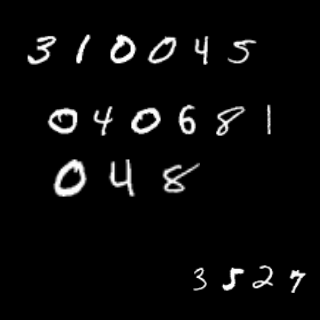 310045
040681
048
3527